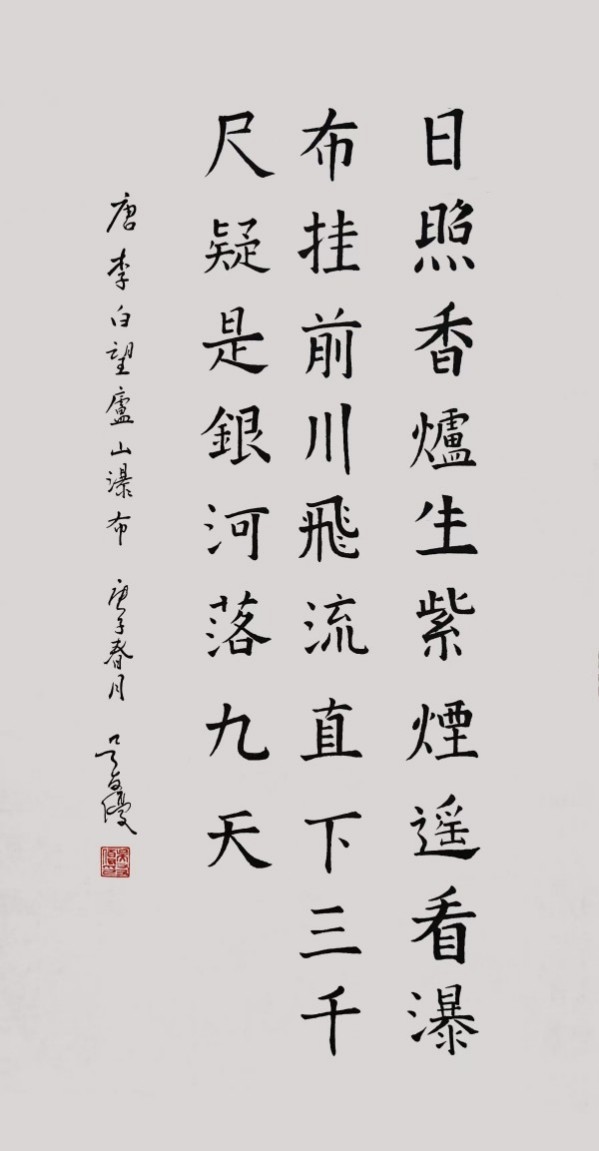 日照香爐生紫煙遥看瀑
布挂前川飛流直下三千
尺疑是銀河落九天
唐李白望廬山瀑布 庚子春月